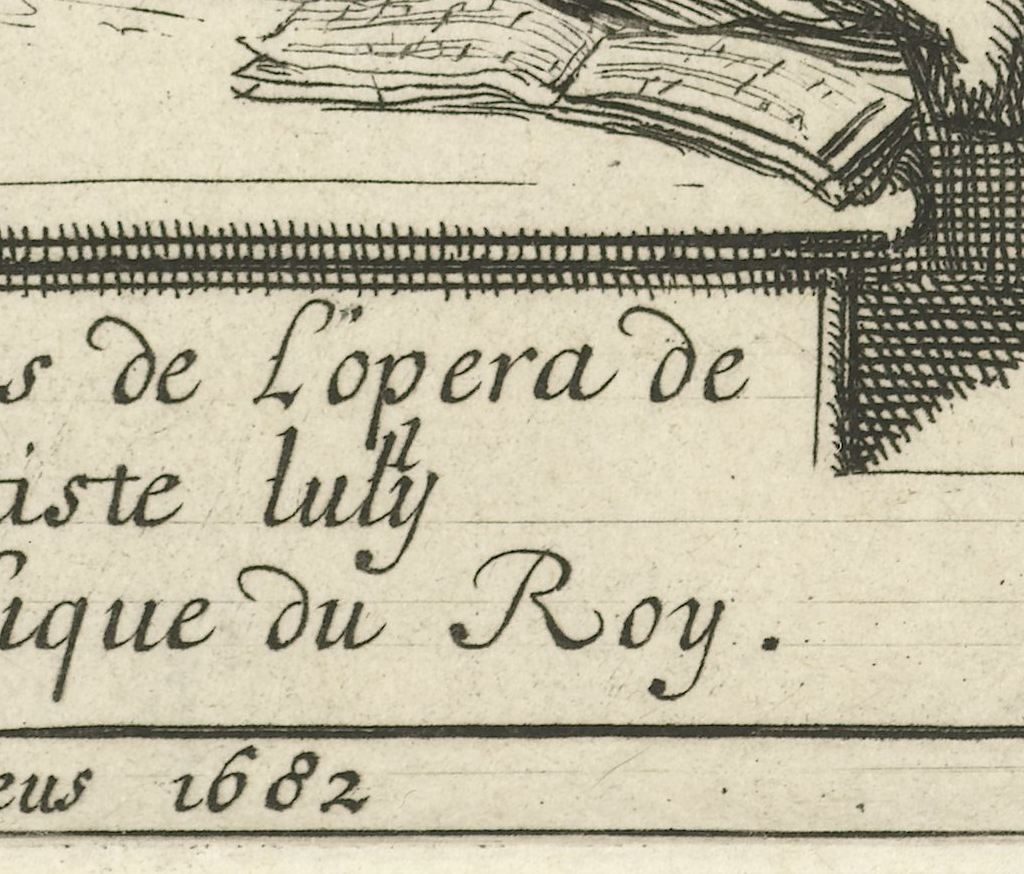 s de L'opera de
iste lully
ique du Roy.
eus 1682